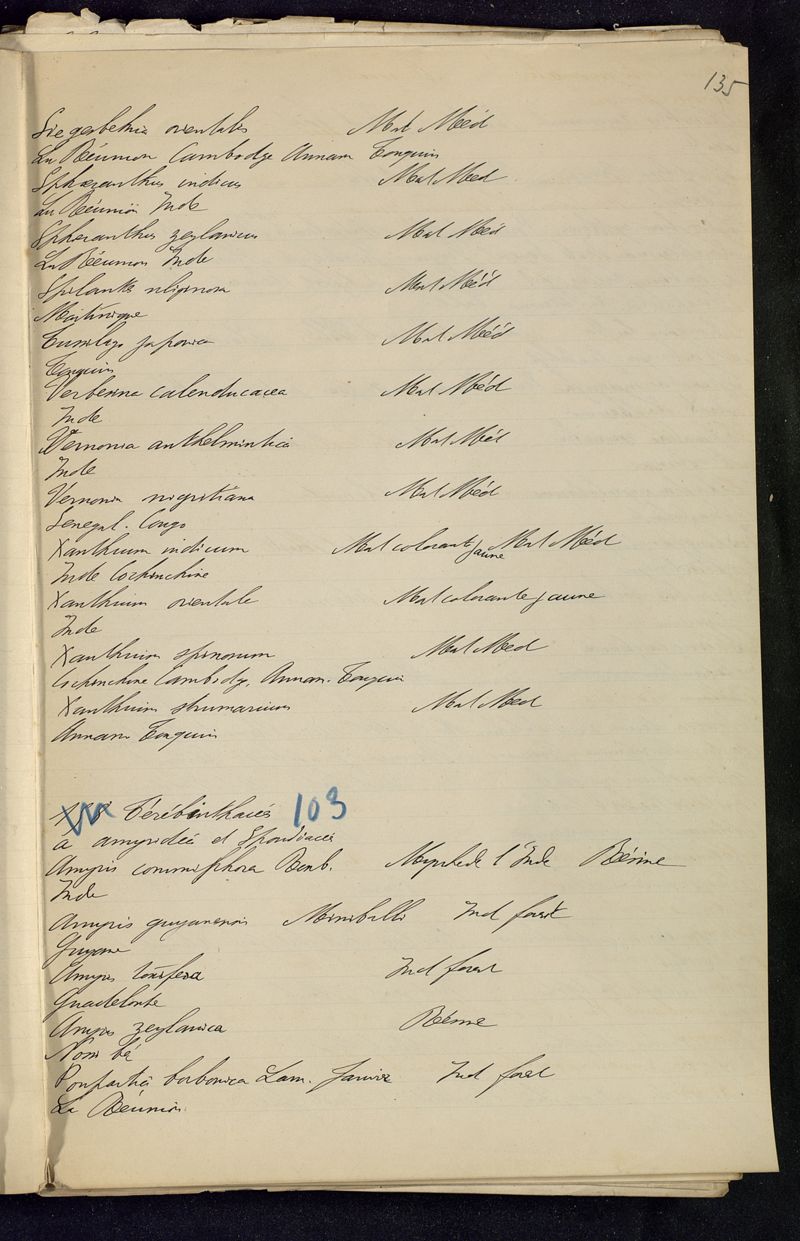 135
Siegesbekia orientalis Mat Méd
La Réunion Cambodge Annam Tonquin
Sphæranthus indicus Mat Méd
La Réunion Inde
Spheranthus zeylanicus Mat Méd
La Réunion Inde
Spilanthes uliginosa Mat Méd
Martinique
Tussilago japonica Mat Méd
Tonquin
Verbesina calenducacea Mat Méd
Inde
Vernonia anthelmintica Mat Méd
Inde
Vernonia nigritiana Mat Méd
Senegal. Congo
Xanthium indicum Mat colorante jaune Mat Méd
Inde Cochinchine
Xanthium orientale Mat colorante jaune
Inde
Xanthium spinosum Mat Med
Cochinchine Cambodge, Annam. Tonquin
Xanthium strumarium Mat Med
Annam Tonquin
Térébinthacés 103
a amyridés et Spondiacés
Amyris commiphora Roxb. Myrrhe de l'Inde Résine
Inde
Amyris guyanensis Ind forest
Guyane
Amyris Ind forest
Guadeloupe
Amyris zeylanica Résine
Nossi bé
Poupartia borbonica Lam. Ind forest
La Réunion